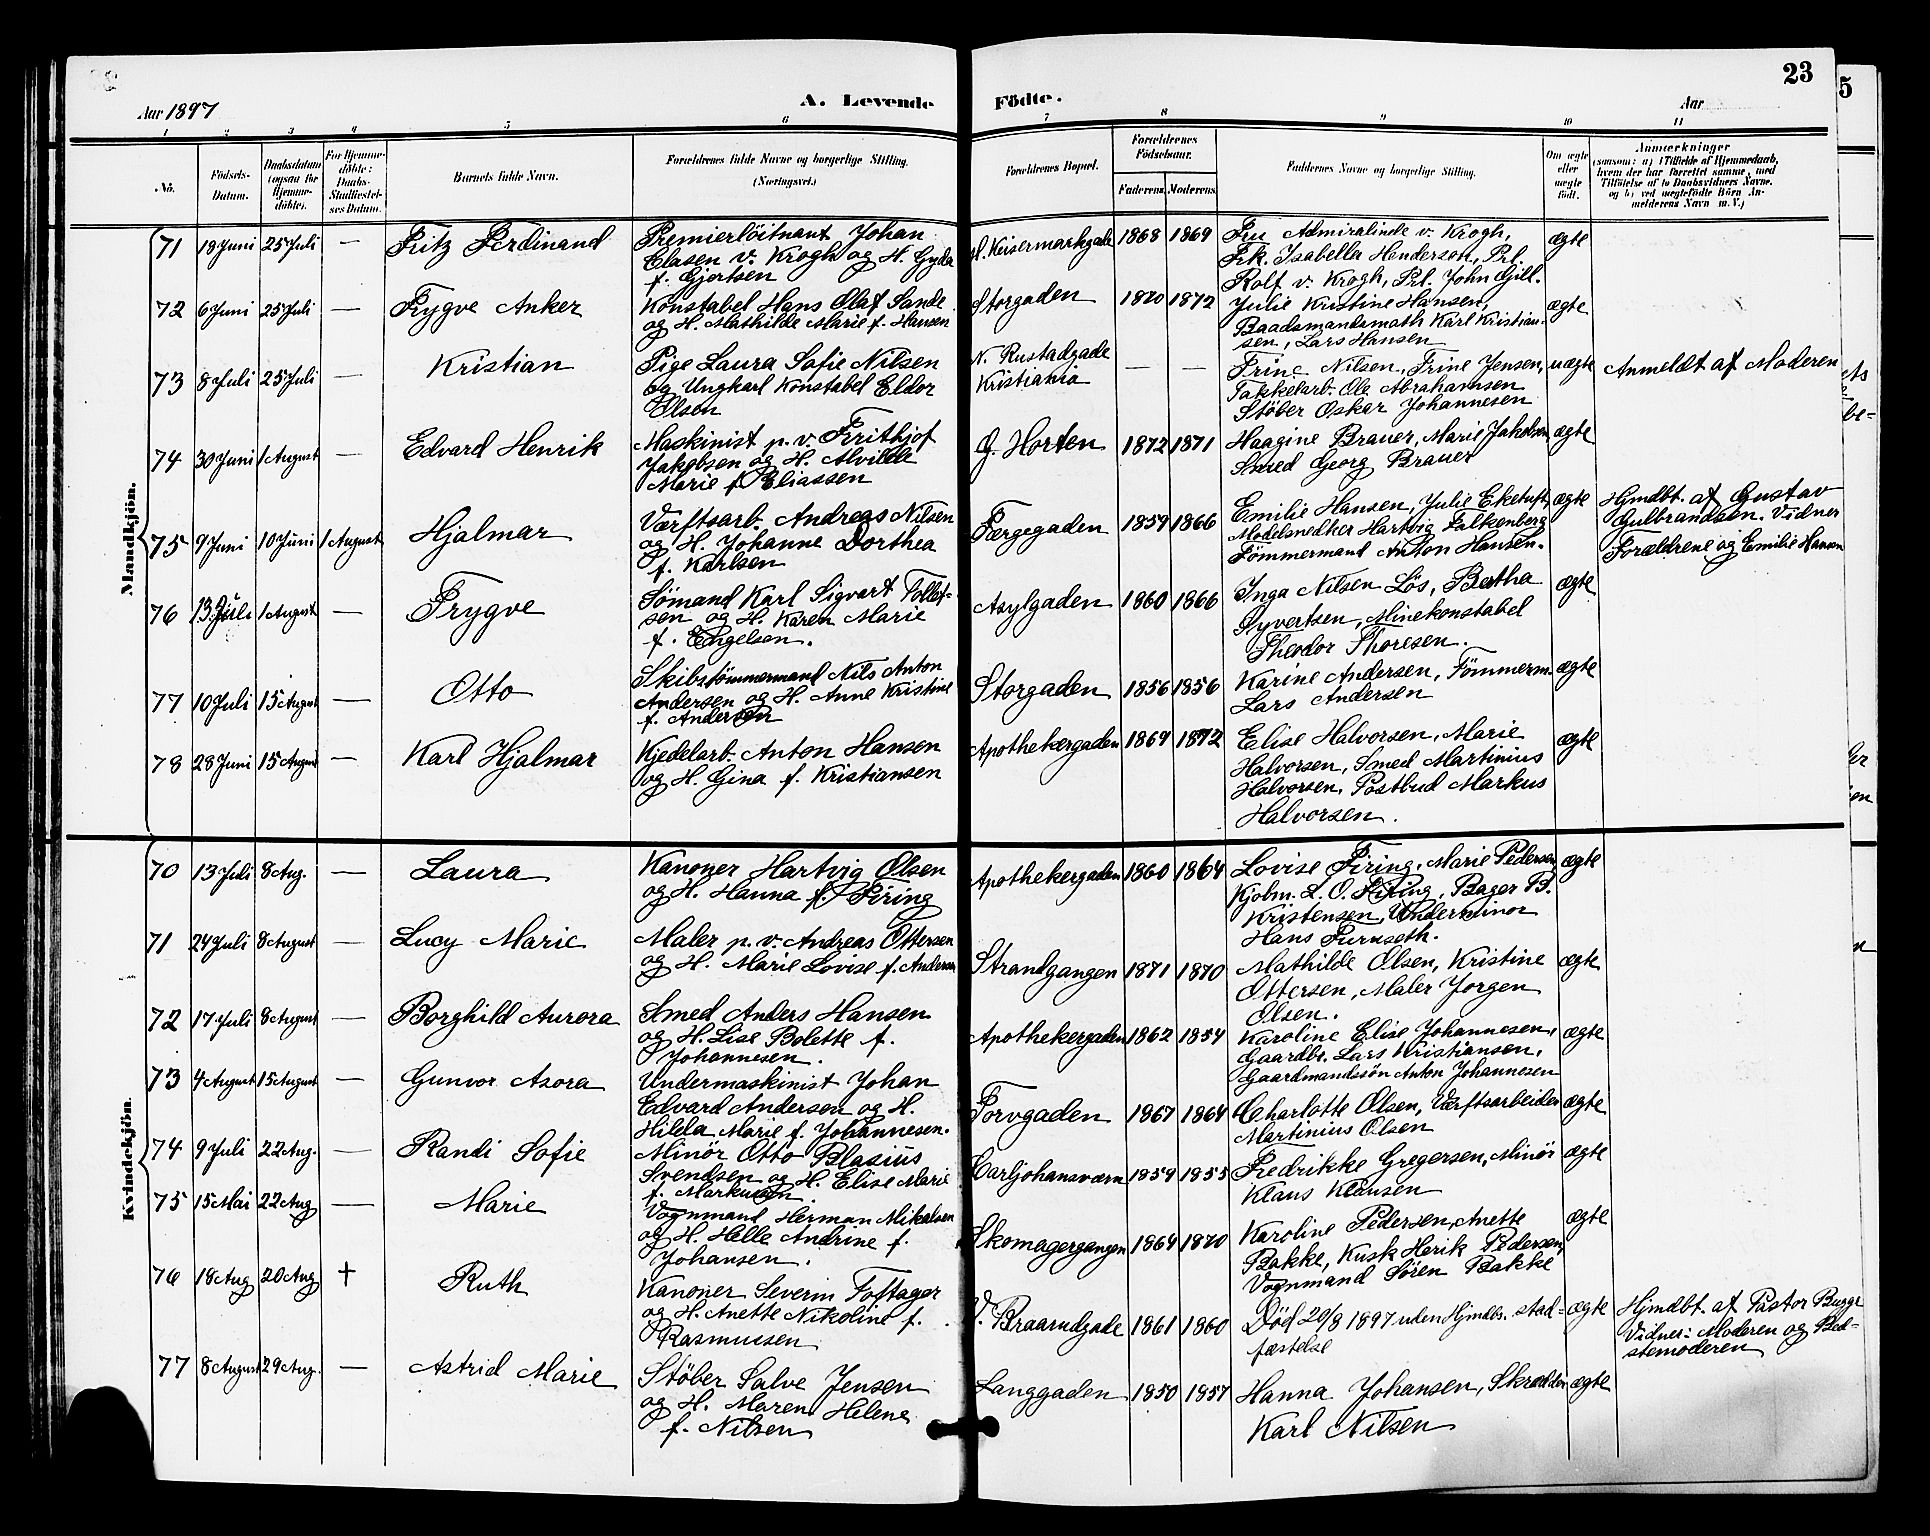 23
Aar 1897 A. Levende Födte. Aar
1 2 3 4 5 6 7 8 9 10 11
No. Födsels-Datum. Daabsdatum (ogsaa for Hjemmedöbte). For Hjemmedöbte: Daabs-Stadfæstelses Datum. Barnets fulde Navn. Forældrenes fulde Navne og borgerlige Stilling. (Næringsvei.) Forældrenes Bopæl. Forældrenes Födselsaar. Faderens. Moderens. Faddernes Navne og borgerlige Stilling. Om ægte eller uægte födt. Anmærkninger (saasom: a) i Tilfælde af Hjemmedaab, hvem der har forrettet samme, med Tilföielse af to Daabsvidners Navne, og b) ved uægtefödte Börn Anmelderens Navn m. V.)
Mandkjön.
71 18 Juni 25 Juli — Fritz Ferdinand
Premierlöitnant Johan
Clasen v. Krogh og H. Gyda
f. Gjertsen
Keisermarkgade 1868 1869
Fru Admiralinde v. Krogh,
Frk. Isabella Henderson, Prl.
Rolf v. Krogh, Prl. John Gill.
ægte
72 6 Juni 25 Juli — Trygve Anker
Konstabel Hans Olaf Sande
og H. Mathilde Marie f. Hansen
Storgaden 1870 1872
Julie Kristine Hansen,
Baadsmandsmath Karl Kristian-
sen, Lars Hansen
ægte
73 8 Juli 25 Juli — Kristian
Pige Laura Sofie Nilsen
og Ungkarl Konstabel Eldor
Olsen
N. Rustadgade
Kristiania
— —
Trine Nilsen, Trine Jensen,
Takkelarb. Ole Abrahamsen
Stöber Oskar Johannesen
uægte
Anmeldt af Moderen
74 30 Juni 1 August — Edvard Henrik
Maskinist p. v. Frithjof
Jakobsen og H. Alvilde
Marie f. Eliassen
G. Horten 1872 1871
Haagine Brauer, Marie Jakobsen
Smed Georg Brauer
ægte
75 9 Juni 10 Juni 1 August Hjalmar
Værftsarb. Andreas Nilsen
og H. Johanne Dorthea
f. Karlsen
Færgegaden 1859 1866
Emilie Hansen, Julie Eketuft,
Modelsnedker Hartvig Falkenberg
Tömmermand Anton Hansen.
ægte
Hjmdbt. af Gustav
Gulbrandsen. Vidner
Forældrene og Emilie Hansen
76 13 Juli 1 August — Trygve
Sömand Karl Sigvart Tollef-
sen og H. Karen Marie
f. Engelsen.
Asylgaden 1860 1866
Inga Nilsen Lös, Bertha
Syvertsen, Minekonstabel
Theodor Thoresen.
ægte
77 10 Juli 15 August — Otto
Skibstömmermand Nils Anton
Andersen og H. Anne Kristine
f. Andersen
Storgaden 1856 1856
Karine Andersen, Tömmerm.
Lars Andersen
ægte
78 28 Juni 15 August — Karl Hjalmar
Kjedelarb. Anton Hansen
og H. Gina f. Kristiansen
Apothekergaden 1869 1872
Elise Halvorsen, Marie
Halvorsen, Smed Martinius
Halvorsen, Postbud Markus
Halvorsen.
ægte
Kvindekjön.
70 13 Juli 8 Aug. — Laura
Kanoner Hartvig Olsen
og H. Hanna f. Firing
Apothekergaden 1860 1864
Lovise Firing, Marie Pedersen
Kjöbm. L. O. Firing, Bager B.
Kristensen, Underminör
Hans Furuseth.
ægte
71 24 Juli 8 August — Lucy Marie
Maler p. v. Andreas Ottersen
og H. Marie Lovise f. Andersen
Strandgangen 1871 1870
Mathilde Olsen, Kristine
Ottersen, Maler Jorgen
Olsen.
ægte
72 17 Juli 8 August — Borghild Aurora
Smed Anders Hansen
og H. Lise Bolette f.
Johannesen.
Apothekergaden 1862 1854
Karoline Elise Johannesen,
Gaardbr. Lars Kristiansen,
Gaardmandssön Anton Johannesen
ægte
73 4 August 15 August — Gunvor Asora
Undermaskinist Johan
Edvard Andersen og H.
Hilda Marie f. Johannesen.
Torvgaden 1867 1864
Charlotte Olsen, Værftsarbeider
Martinius Olsen
ægte
74 9 Juli 22 Aug. — Randi Sofie
Minör Otto Blasius
Svendsen og H. Elise Marie
f. Markussen.
Carljohansværn 1859 1855
Fredrikke Gregersen, Minör
Klaus Klausen
ægte
75 15 Mai 22 Aug — Marie
Vognmand Herman Mikalsen
og H. Helle Andrine f.
Johansen.
Skomagergangen 1869 1870
Karoline Pedersen, Anette
Bakke, Kusk Henrik Pedersen,
Vognmand Sören Bakke
ægte
76 18 Aug 20 Aug † Ruth
Kanoner Severin Toftager
og H. Anette Nikoline f.
Rasmussen
V. Braarudgade 1861 1860
Död 20/8 1897 uden Hjmdbs. stad-
fæstelse
ægte
Hjmdbt. af Pastor
Vidner: Moderen og Bed-
stemoderen
77 8 August 29 Aug. — Astrid Marie
Stöber Salve Jensen
og H. Maren Helene
f. Nilsen
Langgaden 1850 1857
Hanna Johansen, Skrædder
Karl Nilsen
ægte